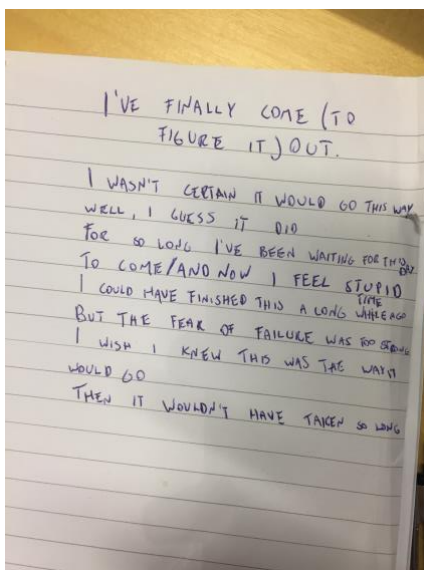 I'VE FINALLY COME (TO
FIGURE IT) OUT.
I WASN'T CERTAIN IT WOULD GO THIS WAY
WELL, I GUESS IT DID
FOR SO LONG I'VE BEEN WAITING FOR THIS DAY
TO COME/AND NOW I FEEL STUPID
I COULD HAVE FINISHED THIS A LONG TIME WHILE AGO
BUT THE FEAR OF FAILURE WAS TOO STRONG
I WISH I KNEW THIS WAS THE WAY IT
WOULD GO
THEN IT WOULDN'T HAVE TAKEN SO LONG